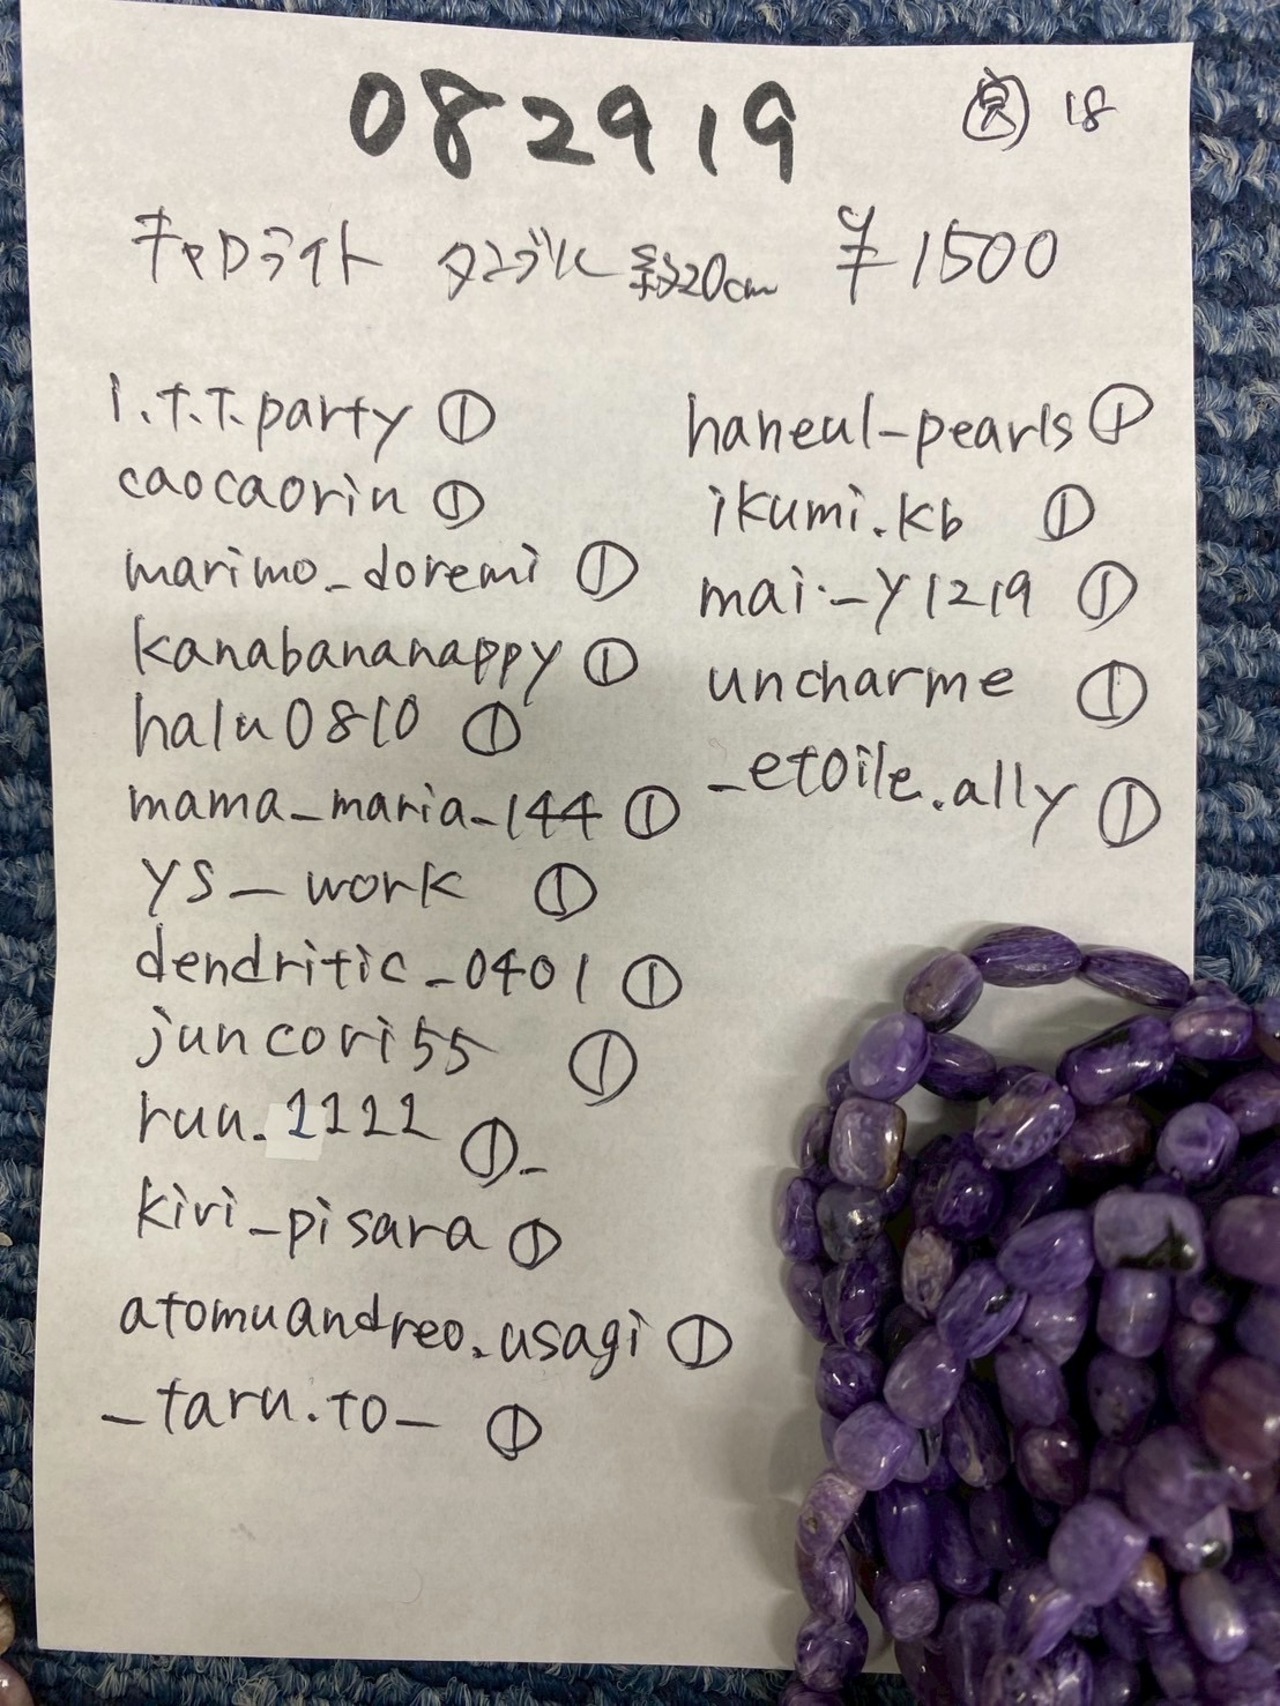 082919 18
チャロライト タンブル 約20cm ¥1500
i.t.t.party ①
caocaorin ①
marimo_doremi ①
kanabananappy ①
halu0810 ①
mama_maria_144 ①
ys_work ①
dendritic_0401 ①
juncori55 ①
ruu.1111 ①_
kiri_pisara ①
atomuandreo.usagi ①
_taru.to_ ①
haneul_pearls ①
ikumi.kb ①
mai._y1219 ①
uncharme ①
_etoile.ally ①